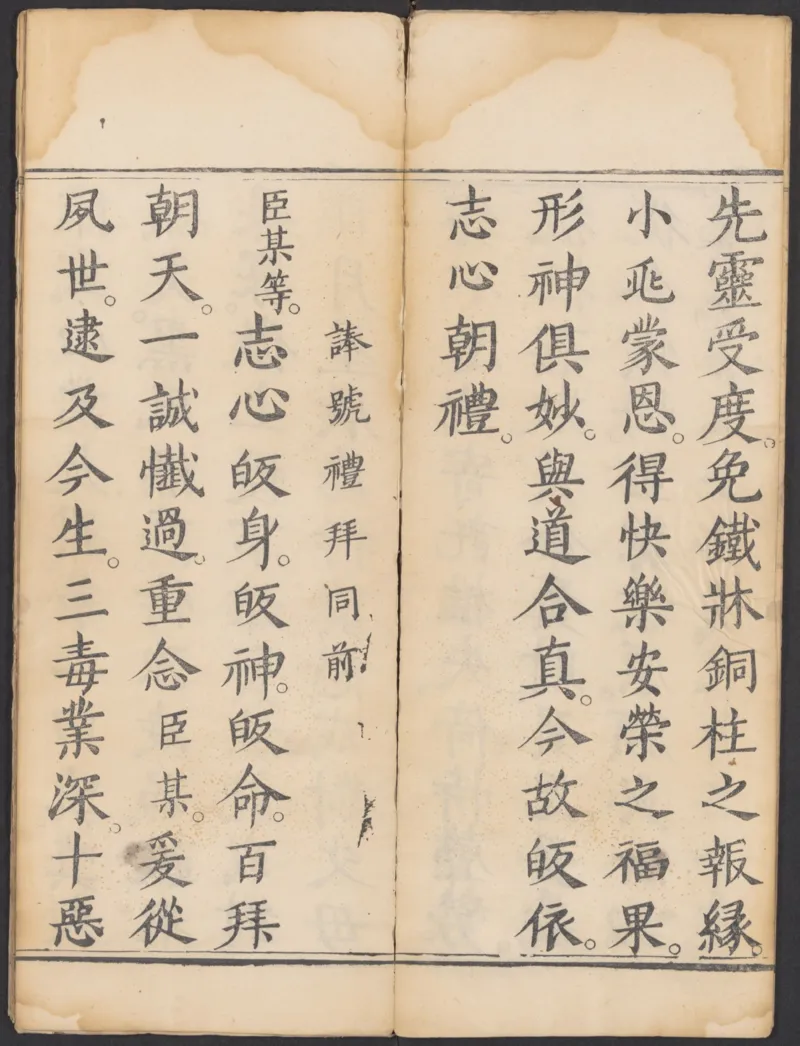 先靈受度。免鐵牀銅柱之報緣。
小兆蒙恩。得快樂安榮之福果。
形神俱妙。與道合真。今故皈依。
志心朝禮。
諱號禮拜同前
臣某等。志心皈身。皈神。皈命。百拜
朝天。一誠懺過。重念臣某。爰從
夙世。逮及今生。三毒業深。十惡